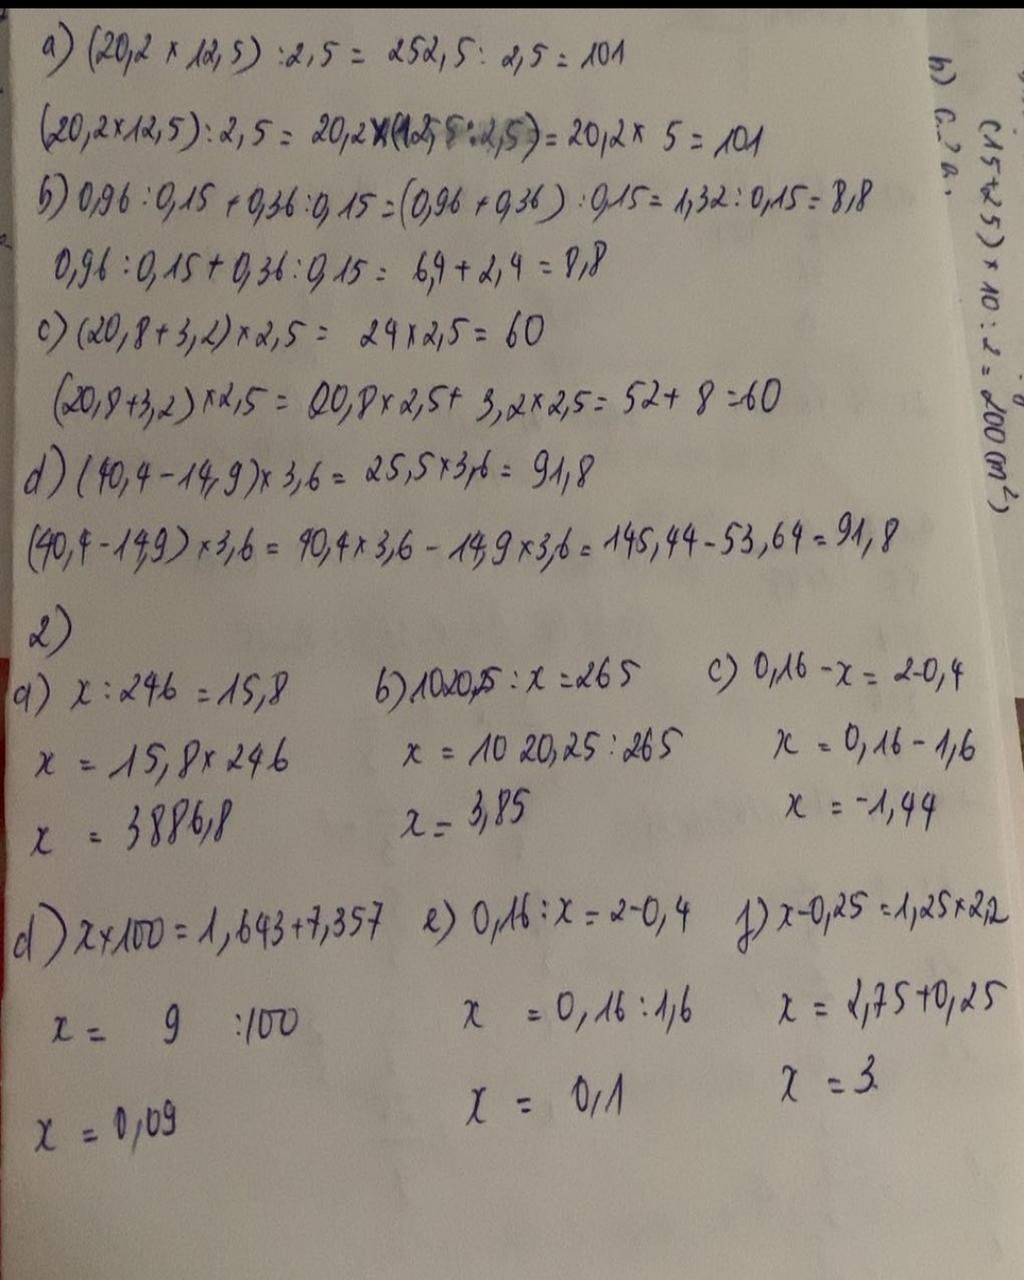 a) (20,2 × 12,5) : 2,5 = 252,5 : 2,5 = 101
(20,2×12,5) : 2,5 = 20,2×(12,5:2,5) = 20,2× 5 = 101
b) 0,96 : 0,15 + 0,36 : 0,15 = (0,96 + 0,36) : 0,15 = 1,32 : 0,15 = 8,8
0,96 : 0,15 + 0,36 : 0,15 = 6,4 + 2,4 = 8,8
c) (20,8 + 3,2) × 2,5 = 24 × 2,5 = 60
(20,8+3,2) × 2,5 = 20,8 × 2,5 + 3,2 × 2,5 = 52 + 8 = 60
d) (40,4 - 14,9) × 3,6 = 25,5 × 3,6 = 91,8
(40,4 - 14,9) × 3,6 = 40,4 × 3,6 - 14,9 × 3,6 = 145,44 - 53,64 = 91,8
2)
a) x : 246 = 15,8 b) 1020,25 : x = 265 c) 0,16 - x = 2-0,4
x = 15,8 × 246 x = 1020,25 : 265 x = 0,16 - 1,6
x = 3886,8 x = 3,85 x = -1,44
d) x × 100 = 1,643 + 7,357 e) 0,16 : x = 2-0,4 f) x-0,25 = 1,25 × 2,2
x = 9 :100 x = 0,16 : 1,6 x = 2,75 + 0,25
x = 0,09 x = 0,1 x = 3
(15+25) × 10 : 2 = 200 (m²)